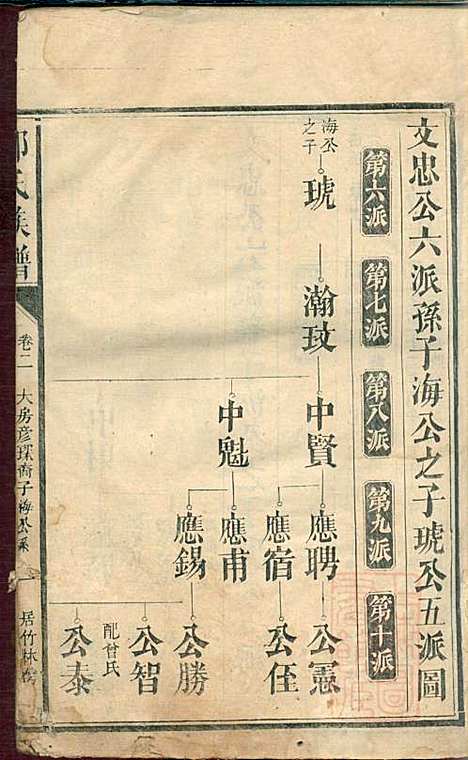 文忠公六派孫子海公之子琥公五派圖
第六派
第七派
第八派
第九派
第十派
海公之子
琥
瀚玟
中賢
中魁
應聘
應宿
應甫
應錫
公憲
公侄
公勝
公智
配曾氏
公泰
氏族譜
卷二
大房彥琛裔子海公系
一
居竹林